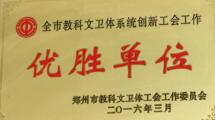 全市教科文卫体系统创新工会工作
优胜单位
郑州市教科文卫体工会工作委员会
二〇一六年三月